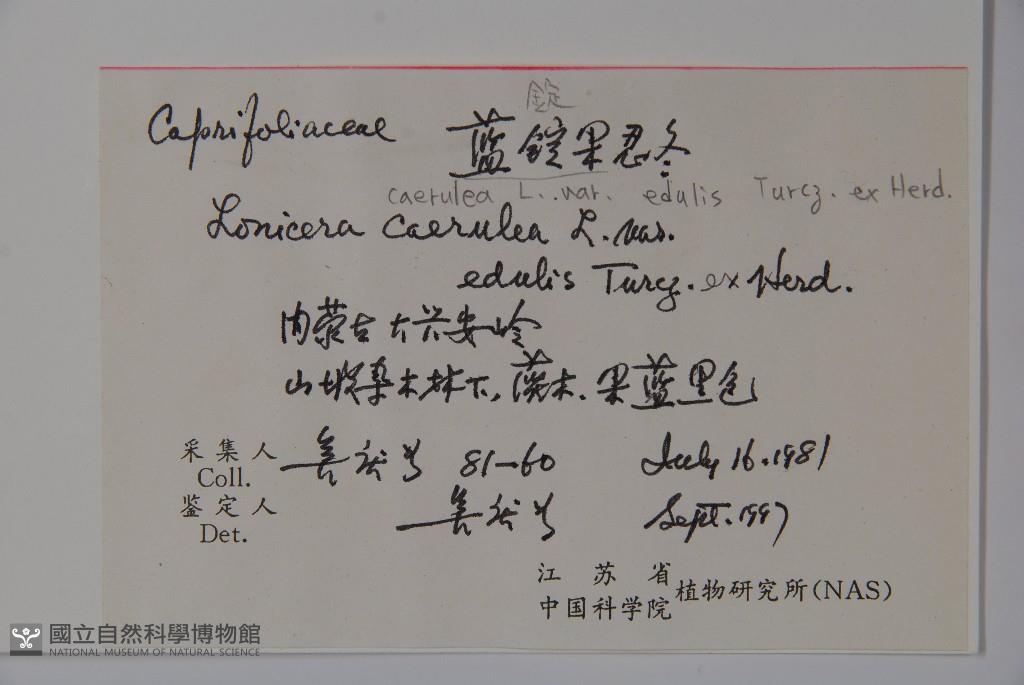 錠
Caprifoliaceae 蓝錠果忍冬
caerulea L. var. edulis Turcz. ex Herd.
Lonicera caerulea L. var.
edulis Turcz. ex Herd.
内蒙古大兴安岭
山坡桑木林下, 灌木. 果蓝黑色
采集人
Coll. 81-60 July 16. 1981
鉴定人
Det. Sept. 1997
江苏省
中国科学院 植物研究所(NAS)
國立自然科學博物館
NATIONAL MUSEUM OF NATURAL SCIENCE